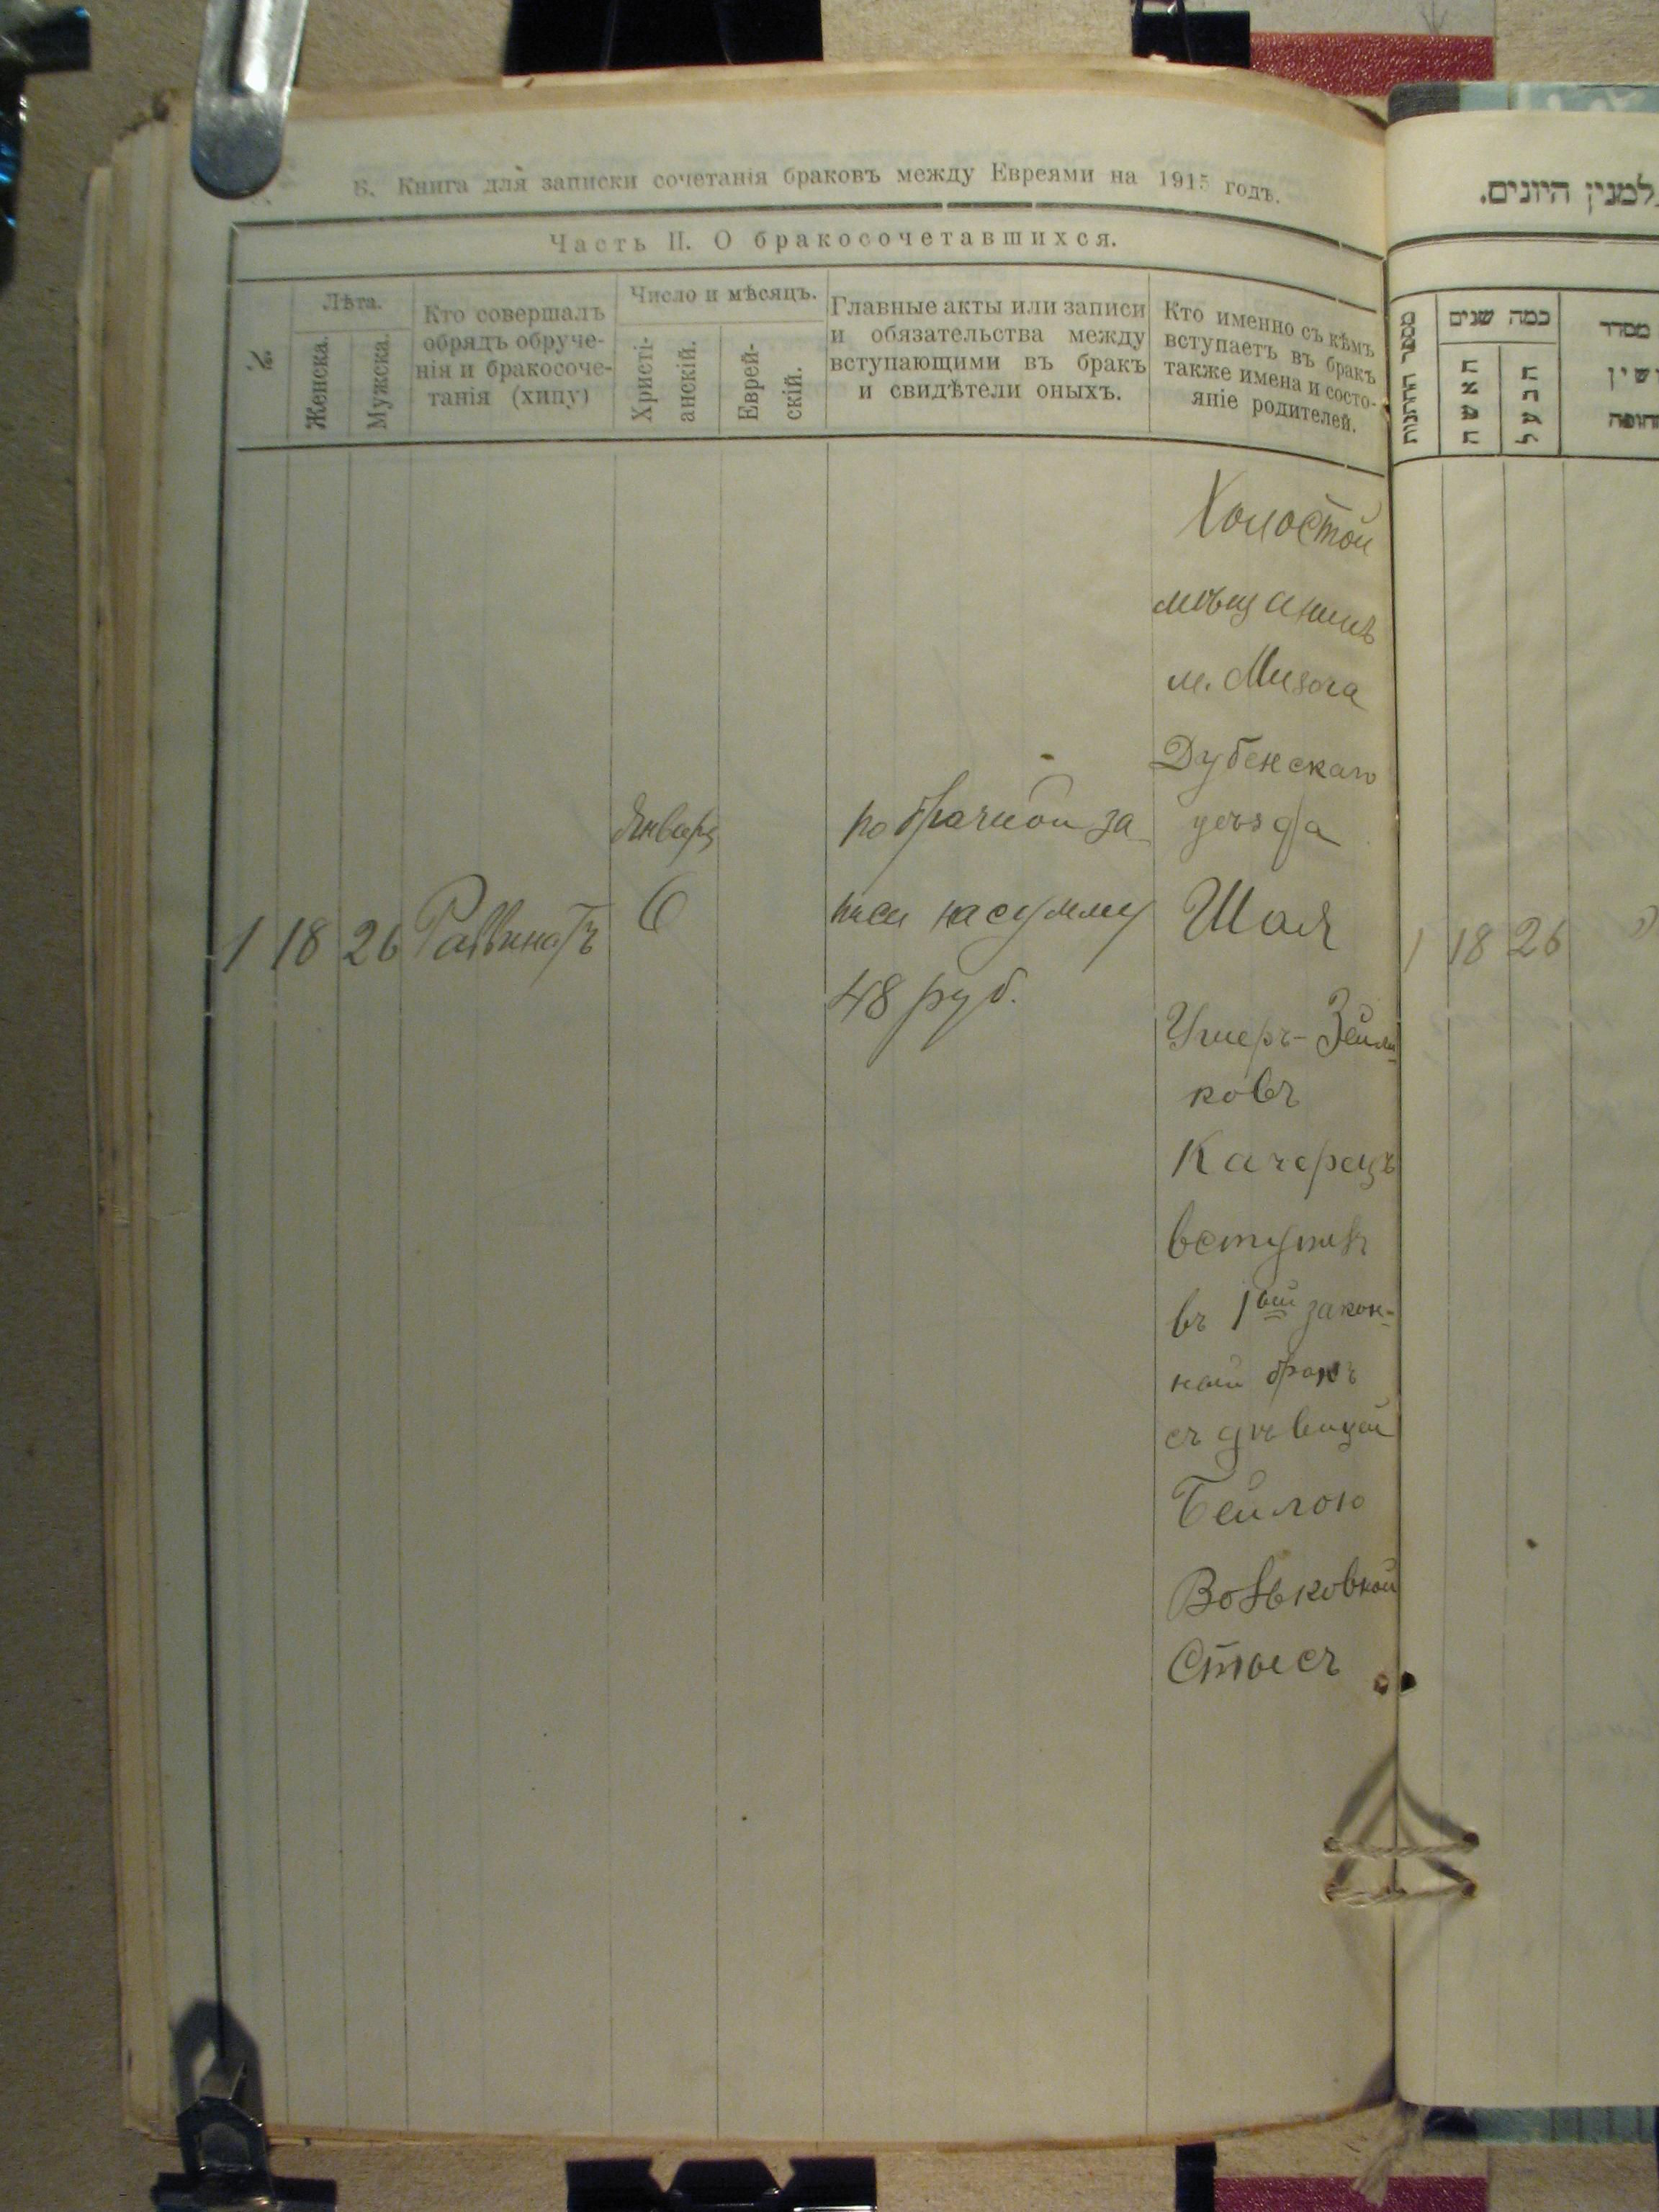 Б. Книга для записки сочетанія браковъ между Евреями на 1915 годъ.
Часть II. О бракосочетавшихся.
№
Лѣта.
Женска.
Мужска.
Кто совершалъ
обрядъ обруче-
нія и бракосоче-
танія (хипу)
Число и мѣсяцъ.
Христі-
анскій.
Еврей-
скій.
Главные акты или записи
и обязательства между
вступающими въ бракъ
и свидѣтели оныхъ.
Кто именно съ кѣмъ
вступаетъ въ бракъ
также имена и состо-
яніе родителей.
1 18 26 Раввинатъ
Января
6
по брачной за-
писи на сумму
48 руб.
Холостой
мѣщанинъ
м. Мизоча
Дубенскаго
уѣзда
Шая
Ушеръ-Зейли-
ковъ
Качерецъ
вступилъ
въ 1ый закон-
ный бракъ
съ дѣвицей
Бейлою
Вольковной
Стысъ
למנין היונים.
מספר החתונות
כמה שנים
האשה
הבעל
מסדר
1 18 26